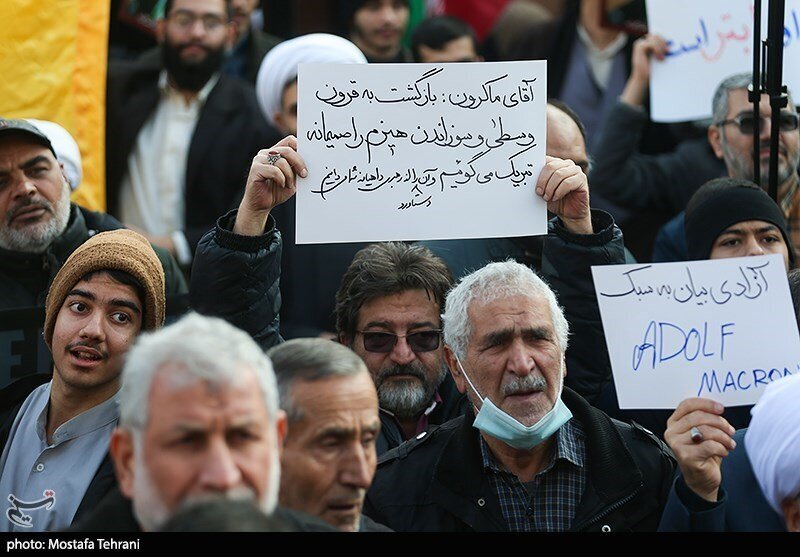 آقای ماکرون: بازگشت به قرون
وسطیٰ و سوزاندن هیزم را صمیمانه
تبریک می‌گوئیم و آن را
دستاورد
آزادی بیان به سبک
ADOLF
MACRON
است
photo: Mostafa Tehrani